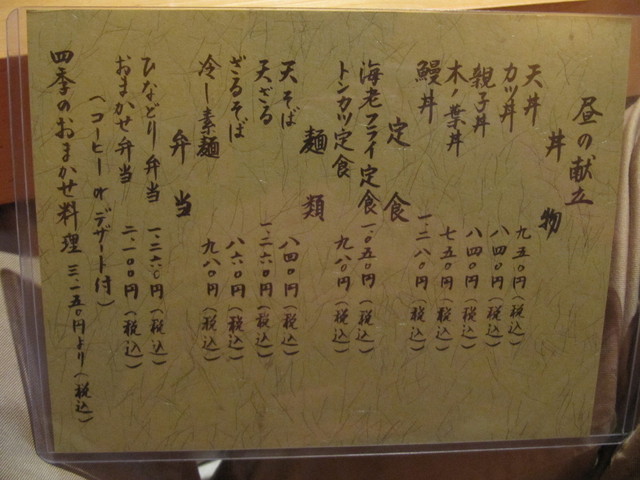 昼の献立
丼物
天丼 九五〇円(税込)
カツ丼 八四〇円(税込)
親子丼 八四〇円(税込)
木ノ葉丼 七五〇円(税込)
鰻丼 一、二八〇円(税込)
定食
海老フライ定食 一、〇五〇円(税込)
トンカツ定食 九八〇円(税込)
麺類
天そば 八四〇円(税込)
天ざる 一、二六〇円(税込)
ざるそば 八六〇円(税込)
冷し素麺 九八〇円(税込)
弁当
ひなどり弁当 一、二六〇円(税込)
おまかせ弁当 二、一〇〇円(税込)
(コーヒーorデザート付)
四季のおまかせ料理 三、一五〇円より(税込)